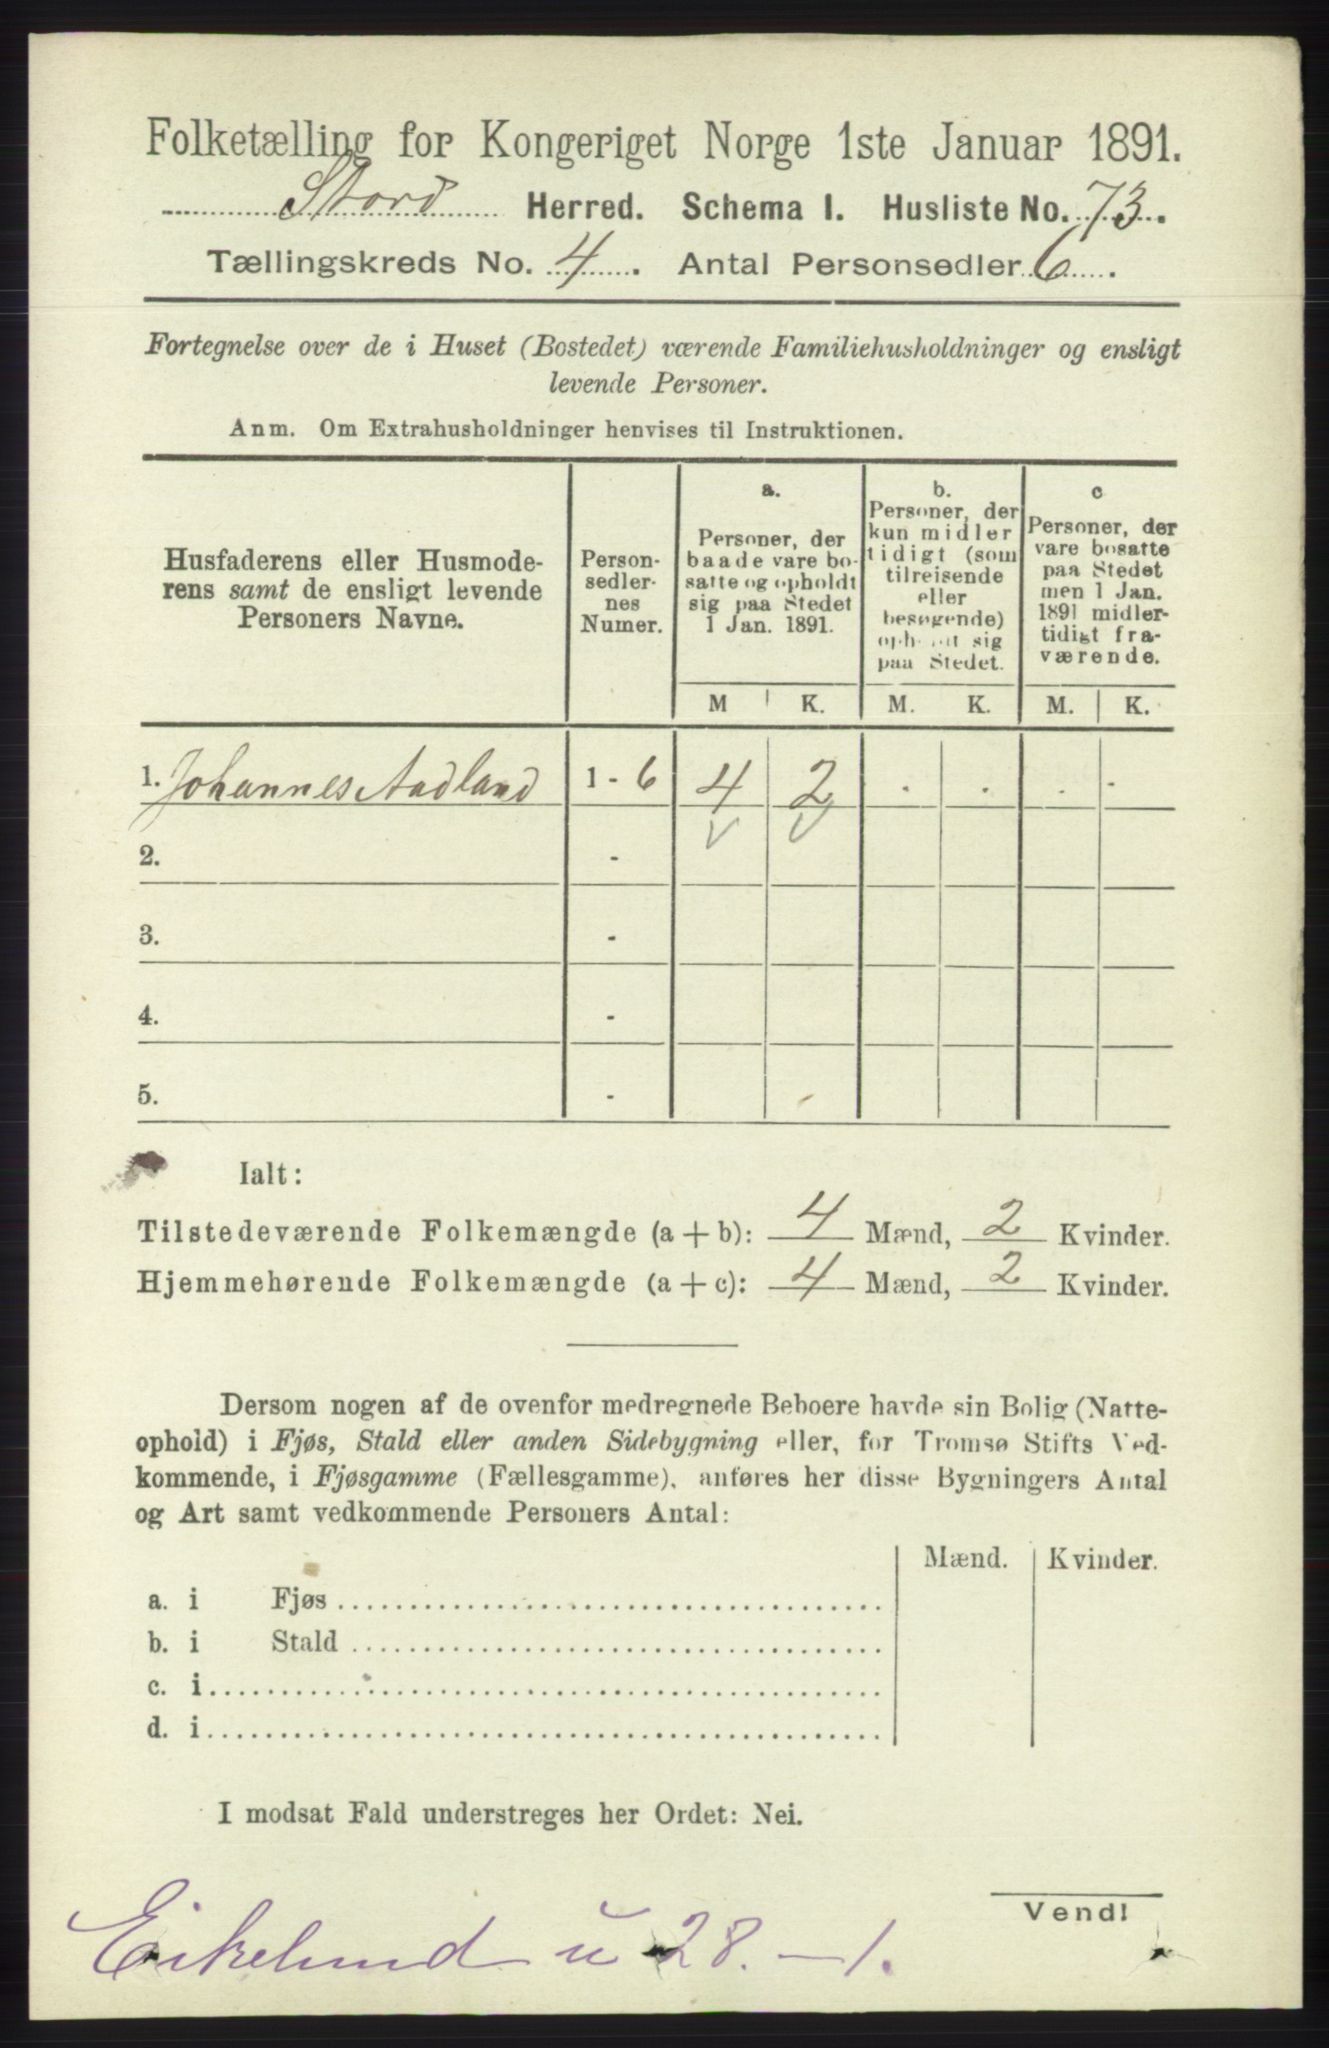 Folketælling for Kongeriget Norge 1ste Januar 1891.
Stord Herred. Schema I. Husliste No. 73.
Tællingskreds No. 4. Antal Personsedler 6.
Fortegnelse over de i Huset (Bostedet) værende Familiehusholdninger og ensligt
levende Personer.
Anm. Om Extrahusholdninger henvises til Instruktionen.
Husfaderens eller Husmode-
rens samt de ensligt levende
Personers Navne.
Person-
sedler-
nes
Numer.
a.
Personer, der
baade vare bo-
satte og opholdt
sig paa Stedet
1 Jan. 1891.
b.
Personer, der
kun midler
tidigt (som
tilreisende
eller
besøgende)
opholdt sig
paa Stedet.
c
Personer, der
vare bosatte
paa Stedet
men 1 Jan.
1891 midler-
tidigt fra-
værende.
M K. M. K. M. K.
1. Johannes Aadland 1 - 6 4 2 . . . .
2. -
3. -
4. -
5. -
Ialt:
Tilstedeværende Folkemængde (a + b): 4 Mænd, 2 Kvinder.
Hjemmehørende Folkemængde (a + c): 4 Mænd, 2 Kvinder.
Dersom nogen af de ovenfor medregnede Beboere havde sin Bolig (Natte-
ophold) i Fjøs, Stald eller anden Sidebygning eller, for Tromsø Stifts Ved-
kommende, i Fjøsgamme (Fællesgamme), anføres her disse Bygningers Antal
og Art samt vedkommende Personers Antal:
Mænd. Kvinder.
a. i Fjøs
b. i Stald
c. i
d. i
I modsat Fald understreges her Ordet: Nei.
Vend!
Eikelund u 28. - 1.